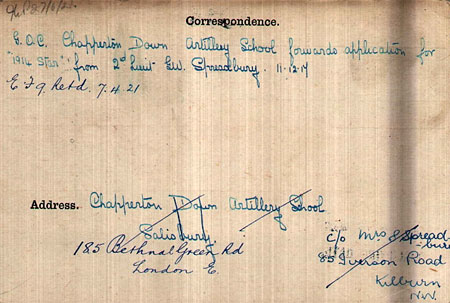 Correspondence.
G.O.C. Chapperton Down Artillery School forwards application for
"1914 Star" from 2nd Lieut G.W. Spreadbury. 11.12.17
E F 9 Retd. 7.4.21
Address. Chapperton Down Artillery School
Salisbury
185 Bethnal Green Rd
London E.
c/o Mrs Spread
bury
85 Iverson Road
Kilburn
N.W.